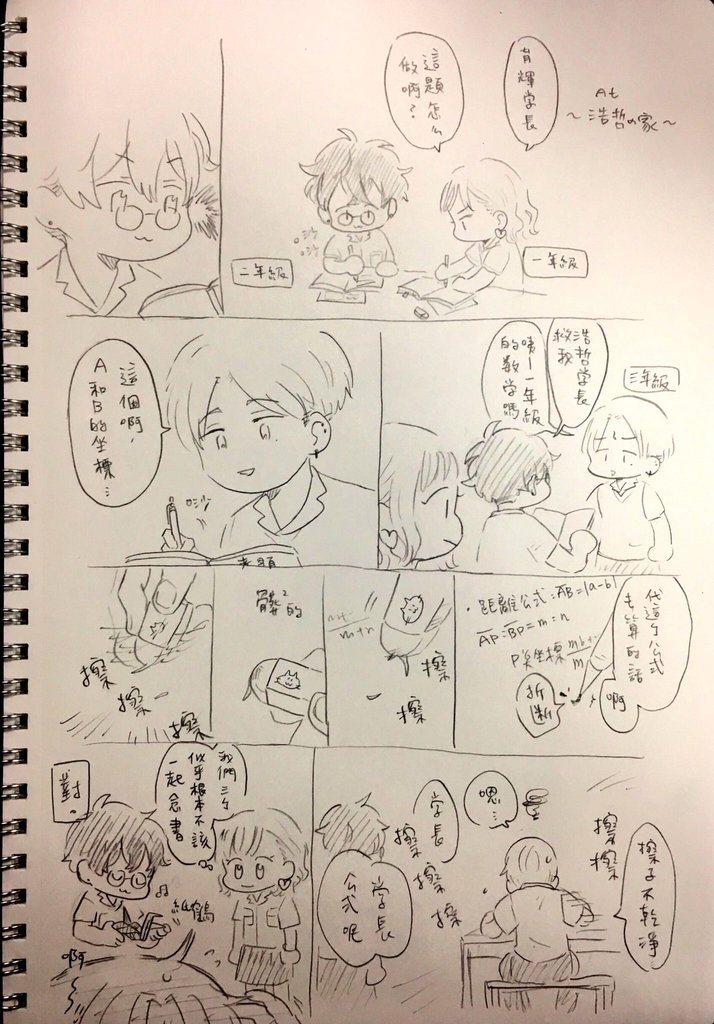 At
~浩哲の家~
肖輝学長
這題怎么
做啊?
一年級
二年級
沙
沙
三年級
浩哲学長
救我
咦!一年級
的数学嗎
這個啊,
A和B的坐標…
沙
考題
代這个公式
去算的話
啊
・距離公式:AB=|a-b|
AP:BP=m:n
P坐標
折断
擦
擦
m+n
髒的
擦
擦
擦
擦子不乾淨
擦
擦
嗯…
学長
擦
擦
擦
学長
公式呢
我們三个
似乎根本不該
一起念書
對。
紙鶴
啊